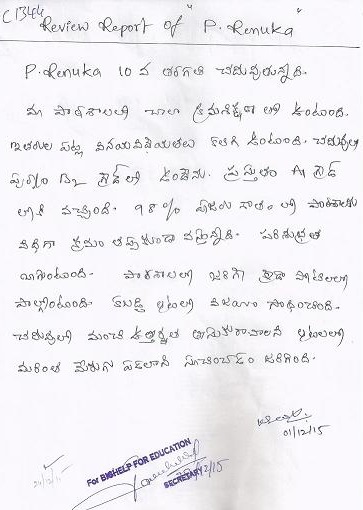 C1344
Review Report of "P. Renuka"
P. Renuka 10 వ తరగతి చదువుతున్నది.
మా పాఠశాలలో చాలా క్రమశిక్షణ లో ఉంటుంది.
ఇతరుల పట్ల వినయవిధేయతలు కలిగి ఉంటుంది. చదువులో
పూర్వం B2 గ్రేడ్ లో ఉండెను. ప్రస్తుతం A1 గ్రేడ్
లోకి వచ్చింది. 98% హాజరు శాతం లో పాఠశాలకు
క్రమం తప్పకుండా వస్తున్నది. పరిశుభ్రత
పాఠశాలలో జరిగే క్రీడా పోటీలలో
పాల్గొంటుంది. కబడ్డీ ఆటలో విజయం సాధించింది.
చదువులో మంచి ఉత్తీర్ణత ఆటలలో
మరింత మెరుగు పడాలని సూచించడం జరిగింది.
01/12/15
For BIGHELP FOR EDUCATION
SECRETARY